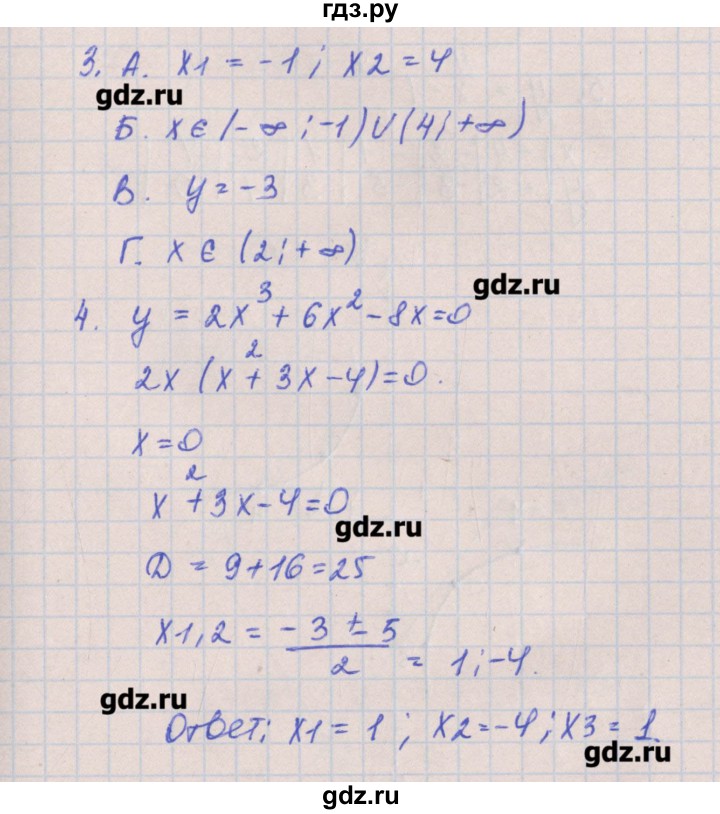 гдз.ру
3. А. x1 = -1; x2 = 4
gdz.ru
Б. x ∈ (-∞; -1) ∪ (4; +∞)
В. y = -3
Г. x ∈ (2; +∞)
gdz.ru
4. y = 2x³ + 6x² - 8x = 0
2x (x² + 3x - 4) = 0.
x = 0
x² + 3x - 4 = 0
gdz.ru
D = 9 + 16 = 25
x1,2 = (-3 ± 5)/2 = 1; -4.
gdz.ru
Ответ: x1 = 1; x2 = -4; x3 = 1.
gdz.ru
gdz.ru